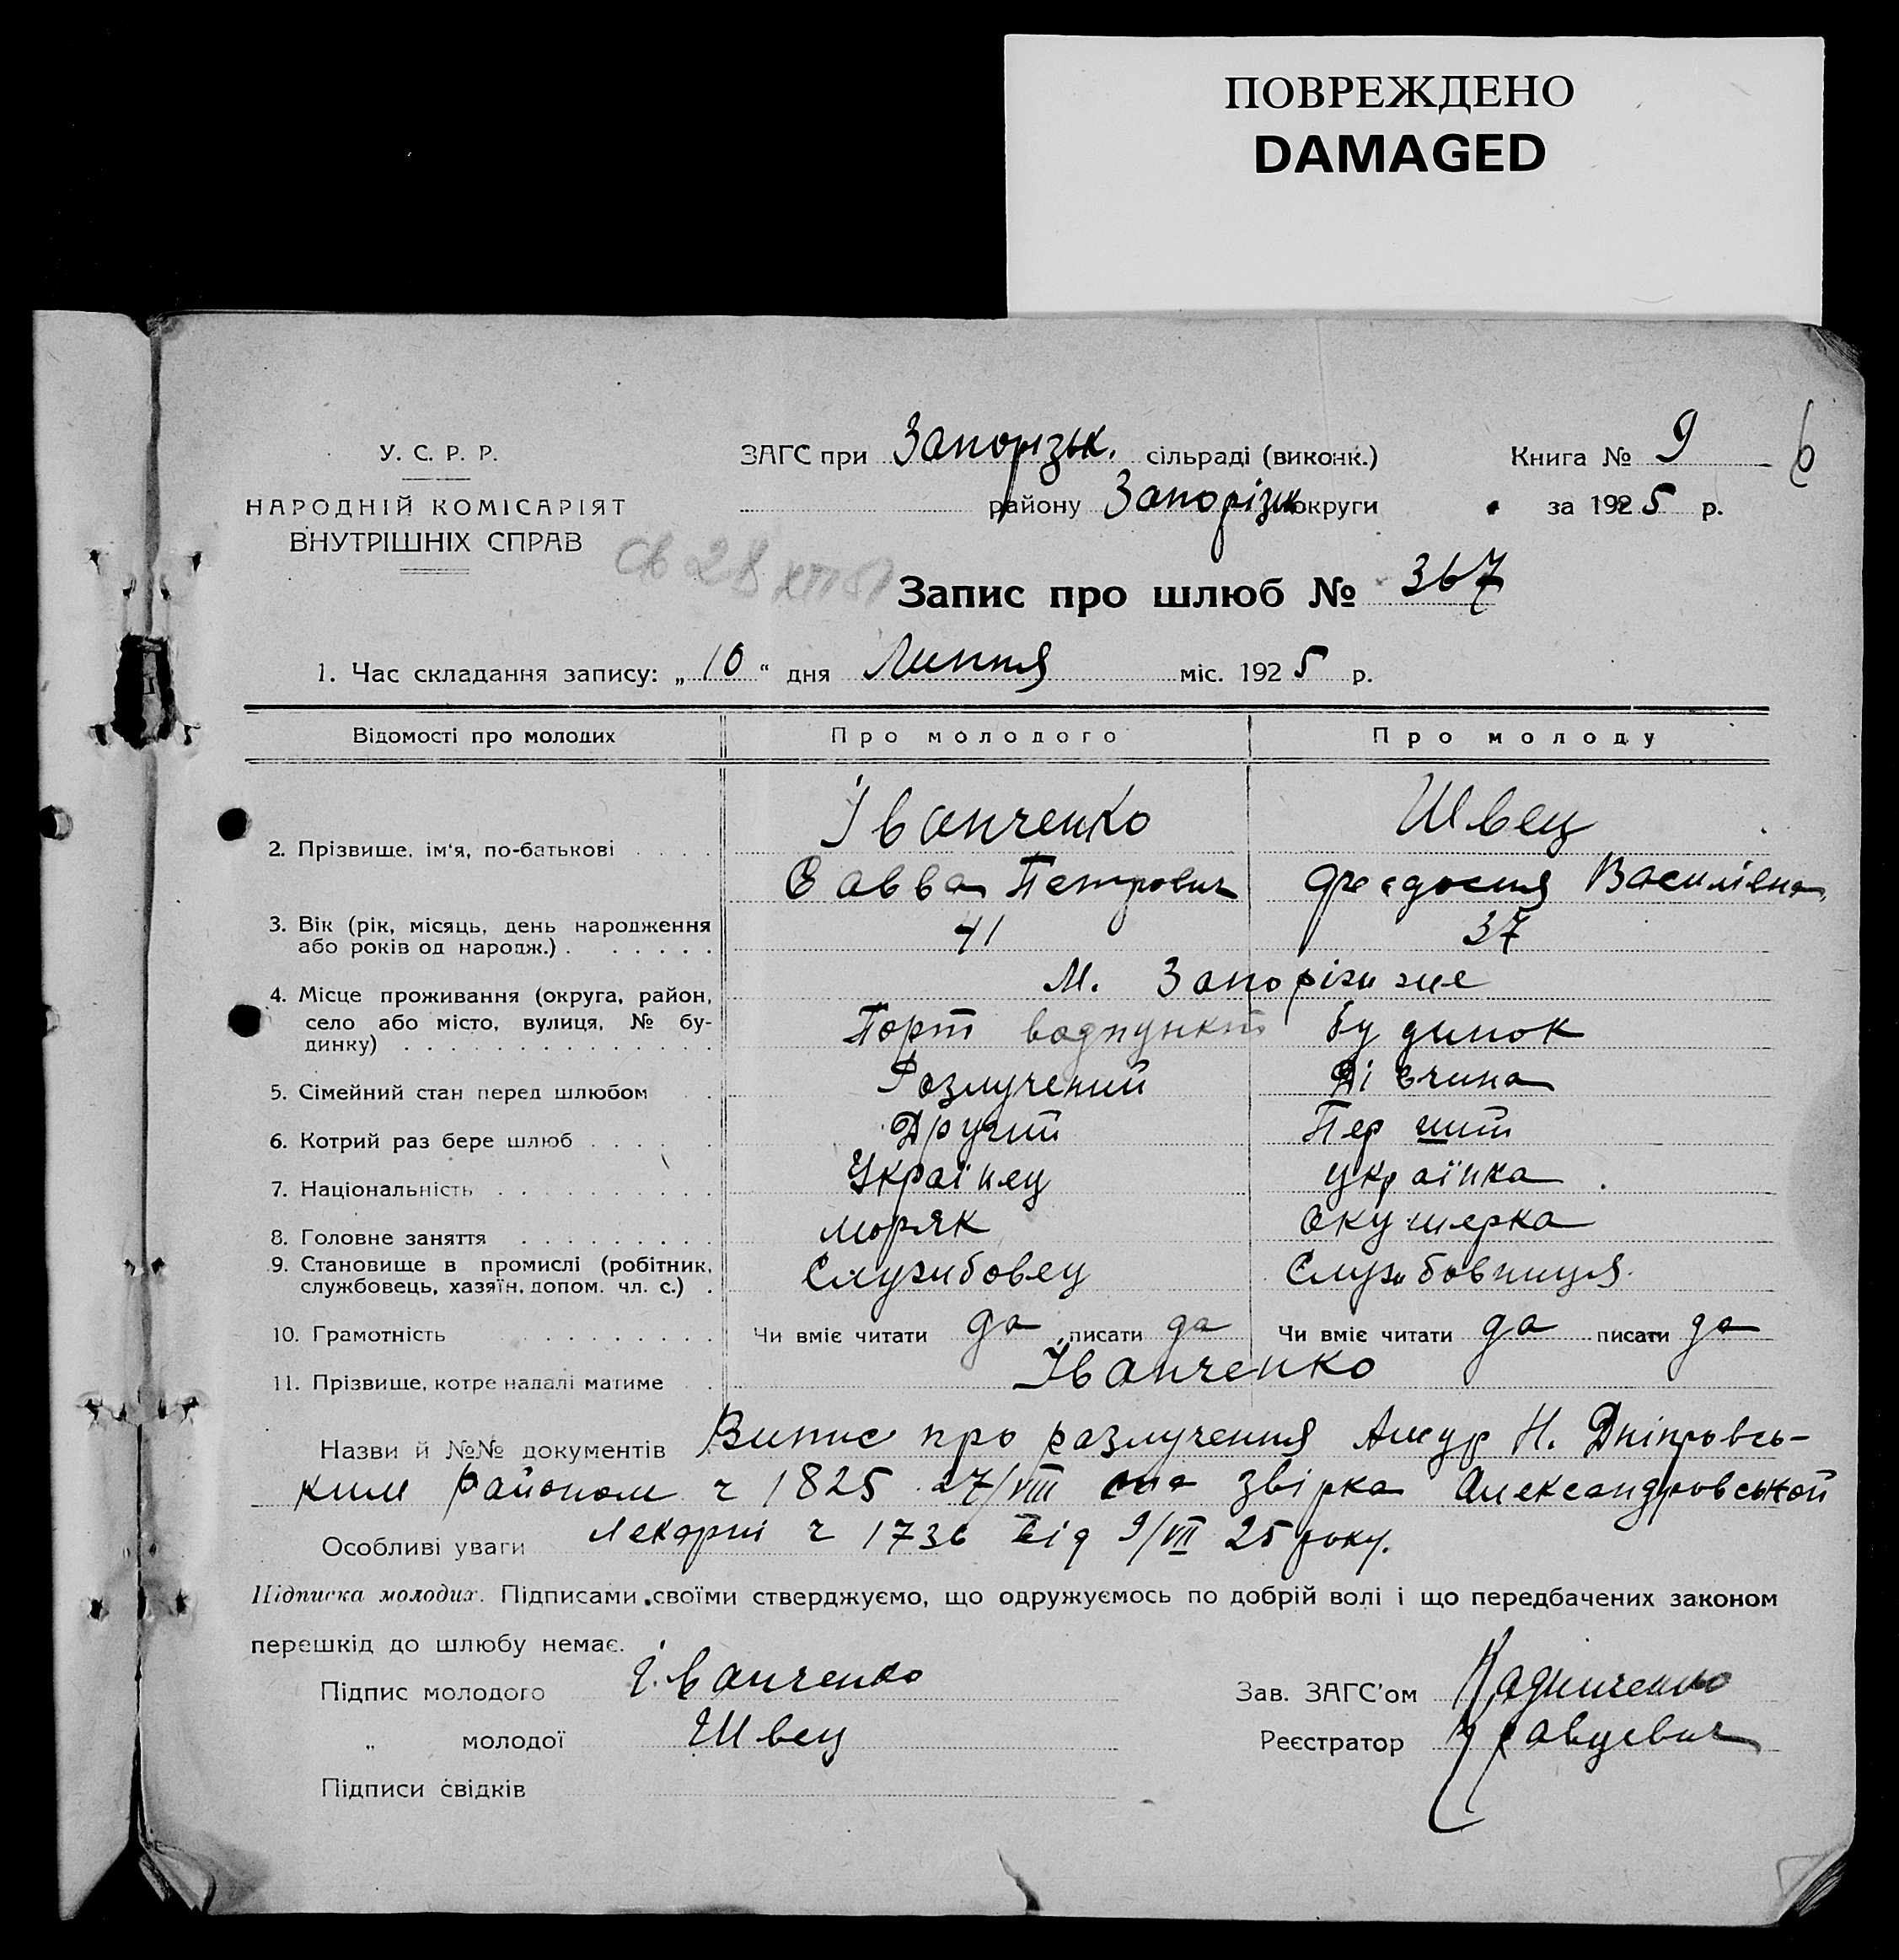 ПОВРЕЖДЕНО
DAMAGED
У. С. Р. Р.
НАРОДНІЙ КОМІСАРІЯТ
ВНУТРІШНІХ СПРАВ
ЗАГС при Запорізьк. сільраді (виконк.)
району Запоріжк округи
Книга № 9
6
за 1925 р.
Запис про шлюб № 367
1. Час складання запису: „10“ дня Липня міс. 1925 р.
Відомості про молодих Про молодого Про молоду
Іванченко Швец
2. Прізвище, ім'я, по-батькові
Савва Петрович Феєдосия Василівна
3. Вік (рік, місяць, день народження
або років од народж.) 41 37
М. Запоріжжє
4. Місце проживання (округа, район,
село або місто, вулиця, № бу-
динку) Порт водпункт будинок
5. Сімейний стан перед шлюбом Розлучений Дівчина
6. Котрий раз бере шлюб Другий Перший
7. Національність Українец українка
8. Головне заняття моряк Окушерка
9. Становище в промислі (робітник,
службовець, хазяїн, допом. чл. с.) Службовец Службовниця
10. Грамотність Чи вміє читати да писати да Чи вміє читати да писати да
11. Прізвище, котре надалі матиме Іванченко
Назви й №№ документів Випис про разлучення Амур Н. Дніпровсь-
ким Районом ч 1825 27/VIII звірка Александровськой
Особливі уваги Лекарні ч 1736 від 9/VII 25 року.
Підписка молодих. Підписами своїми стверджуємо, що одружуємось по добрій волі і що передбачених законом
перешкід до шлюбу немає.
Підпис молодого Іванченко
„ молодої Швец
Підписи свідків
Зав. ЗАГС'ом
Реєстратор Кравцевич